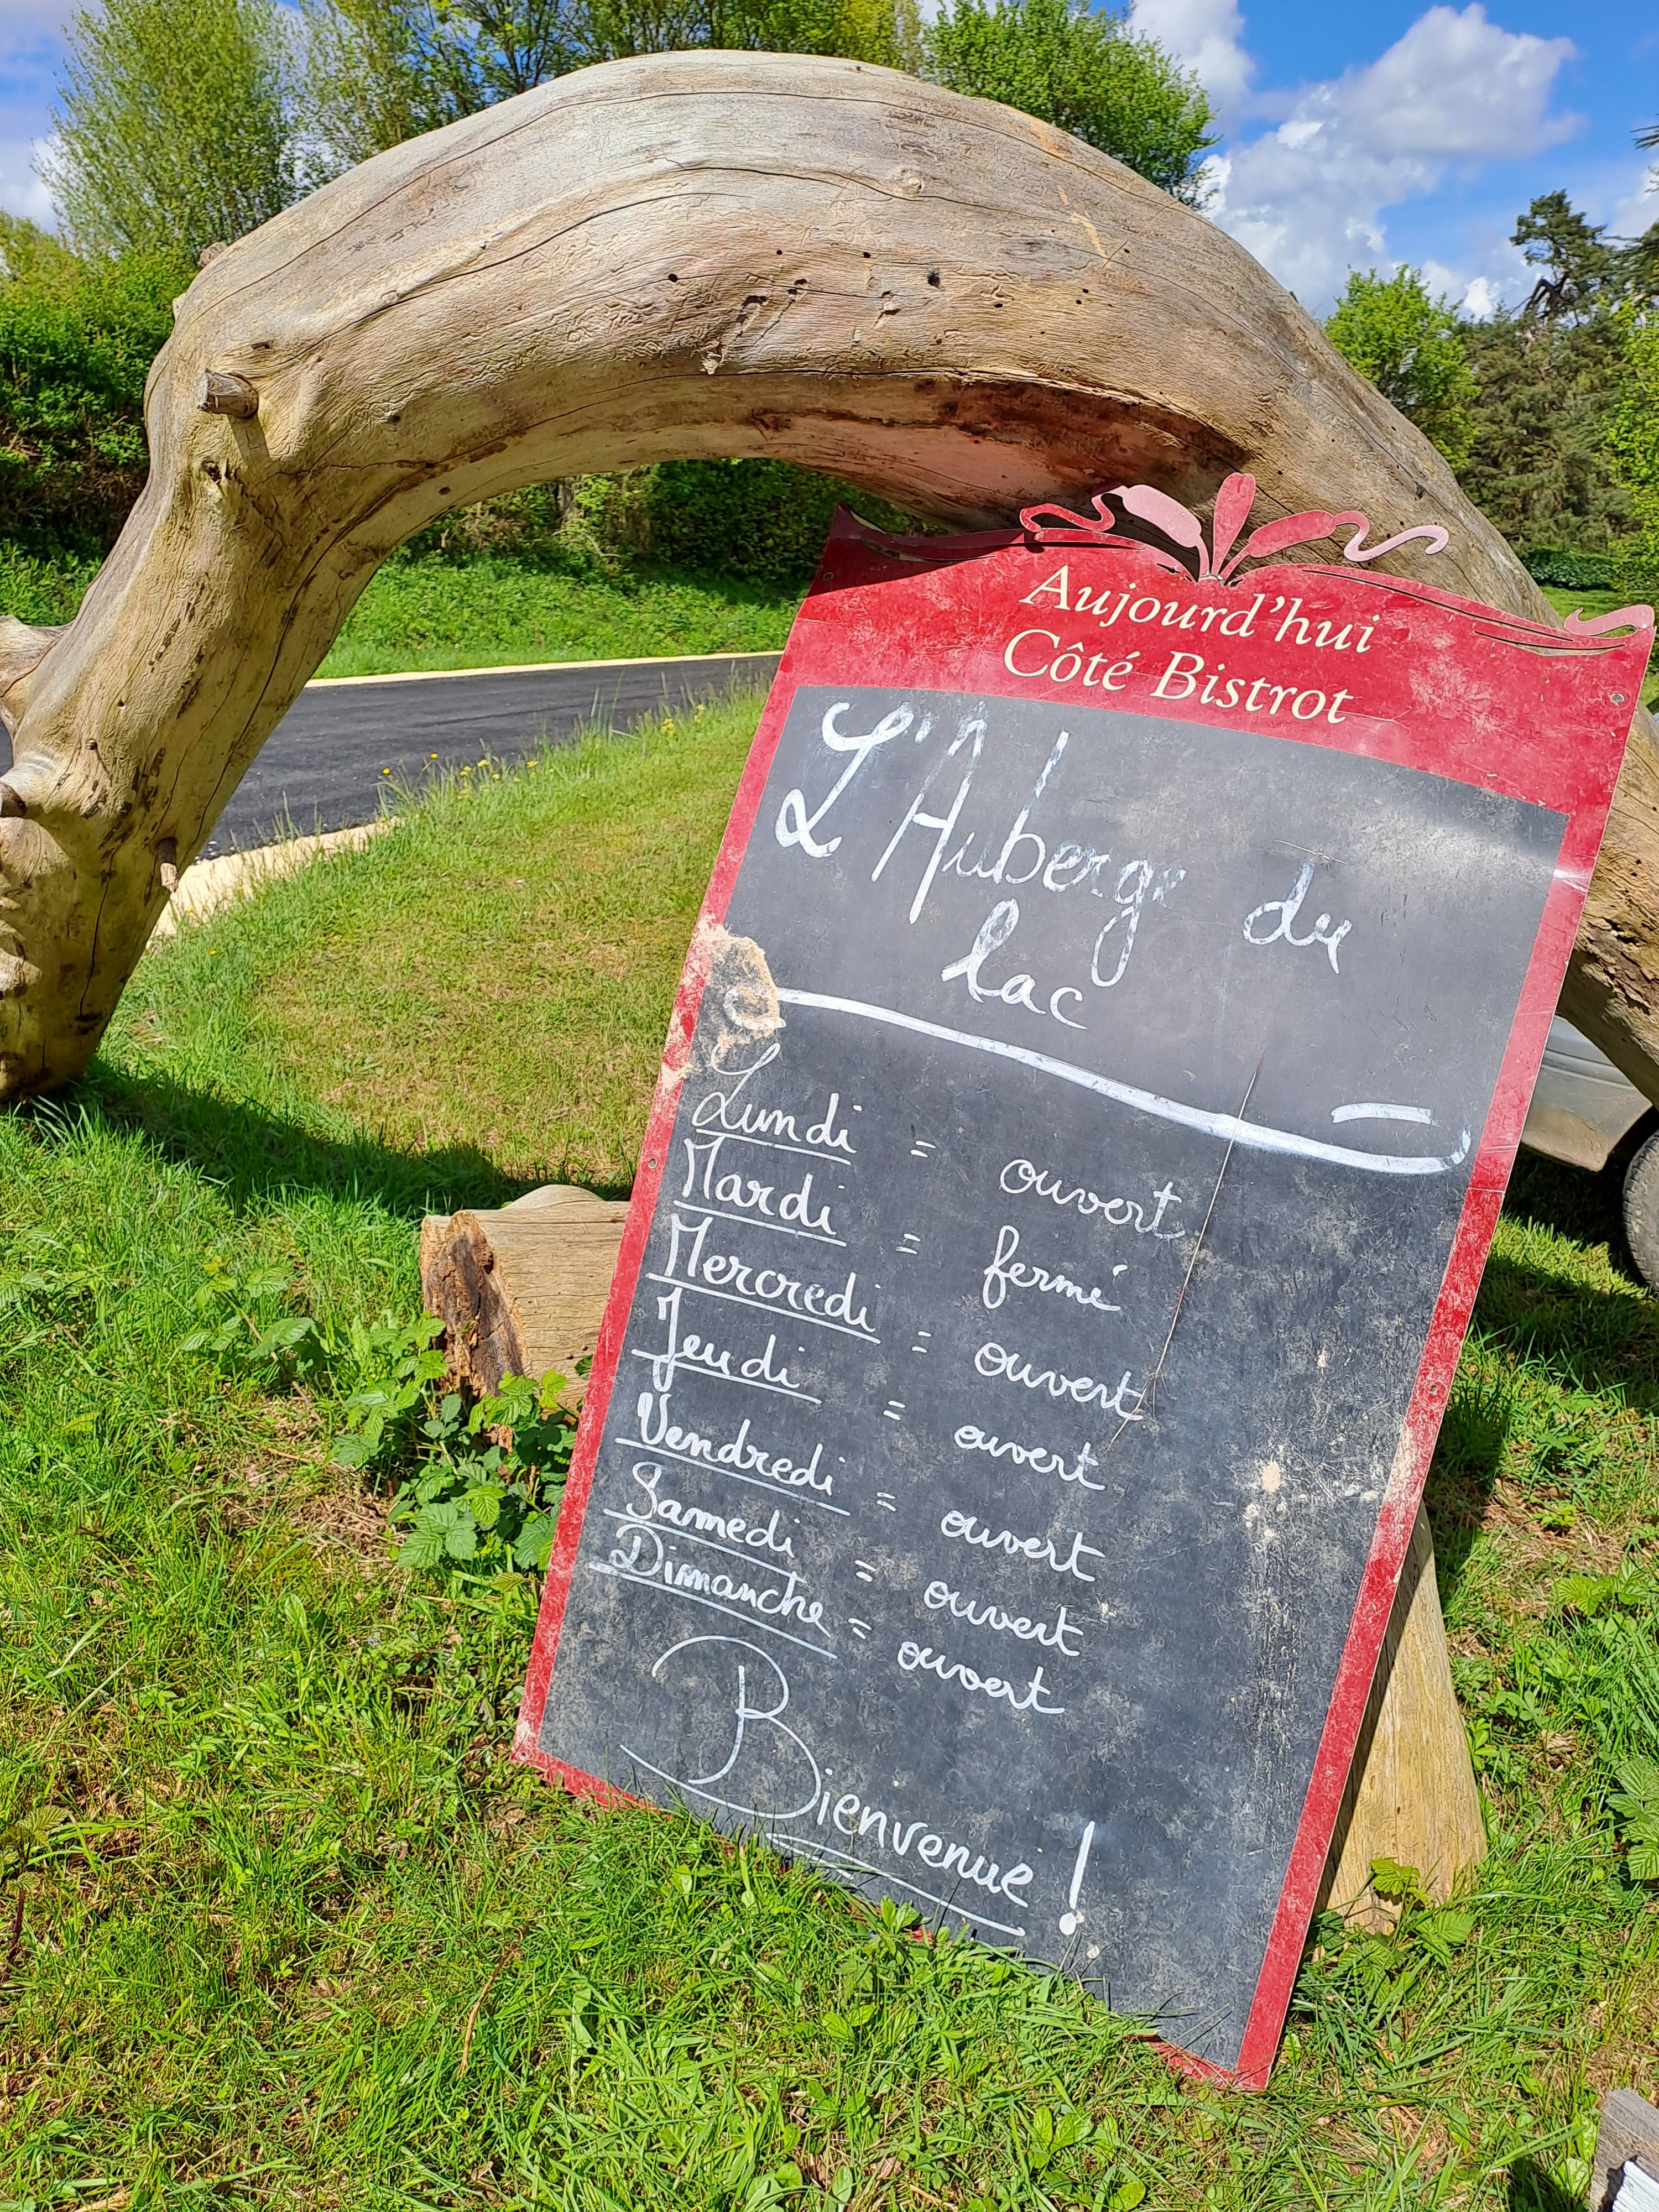 Aujourd'hui
Côté Bistrot
L'Auberge du
lac
Lundi = ouvert
Mardi = fermé
Mercredi = ouvert
Jeudi = ouvert
Vendredi = ouvert
Samedi = ouvert
Dimanche = ouvert
Bienvenue !